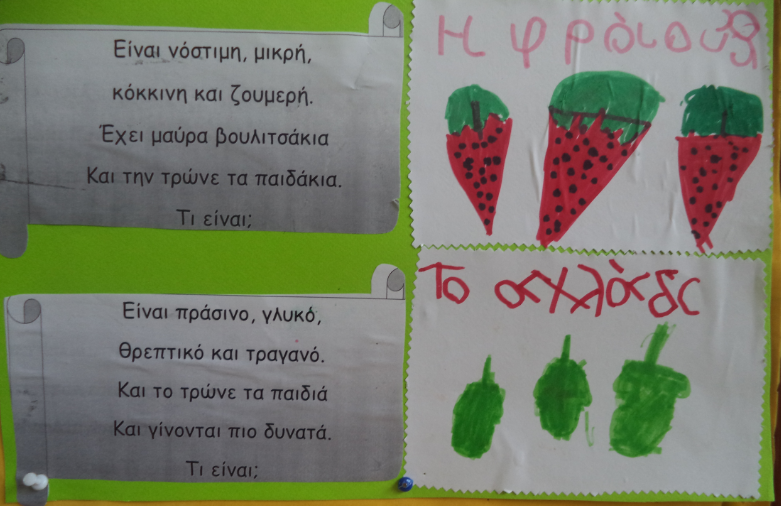 Είναι νόστιμη, μικρή,
κόκκινη και ζουμερή.
Έχει μαύρα βουλιτσάκια
Και την τρώνε τα παιδάκια.
Τι είναι;
Η φράουλα
Είναι πράσινο, γλυκό,
θρεπτικό και τραγανό.
Και το τρώνε τα παιδιά
Και γίνονται πιο δυνατά.
Τι είναι;
Το αχλάδι